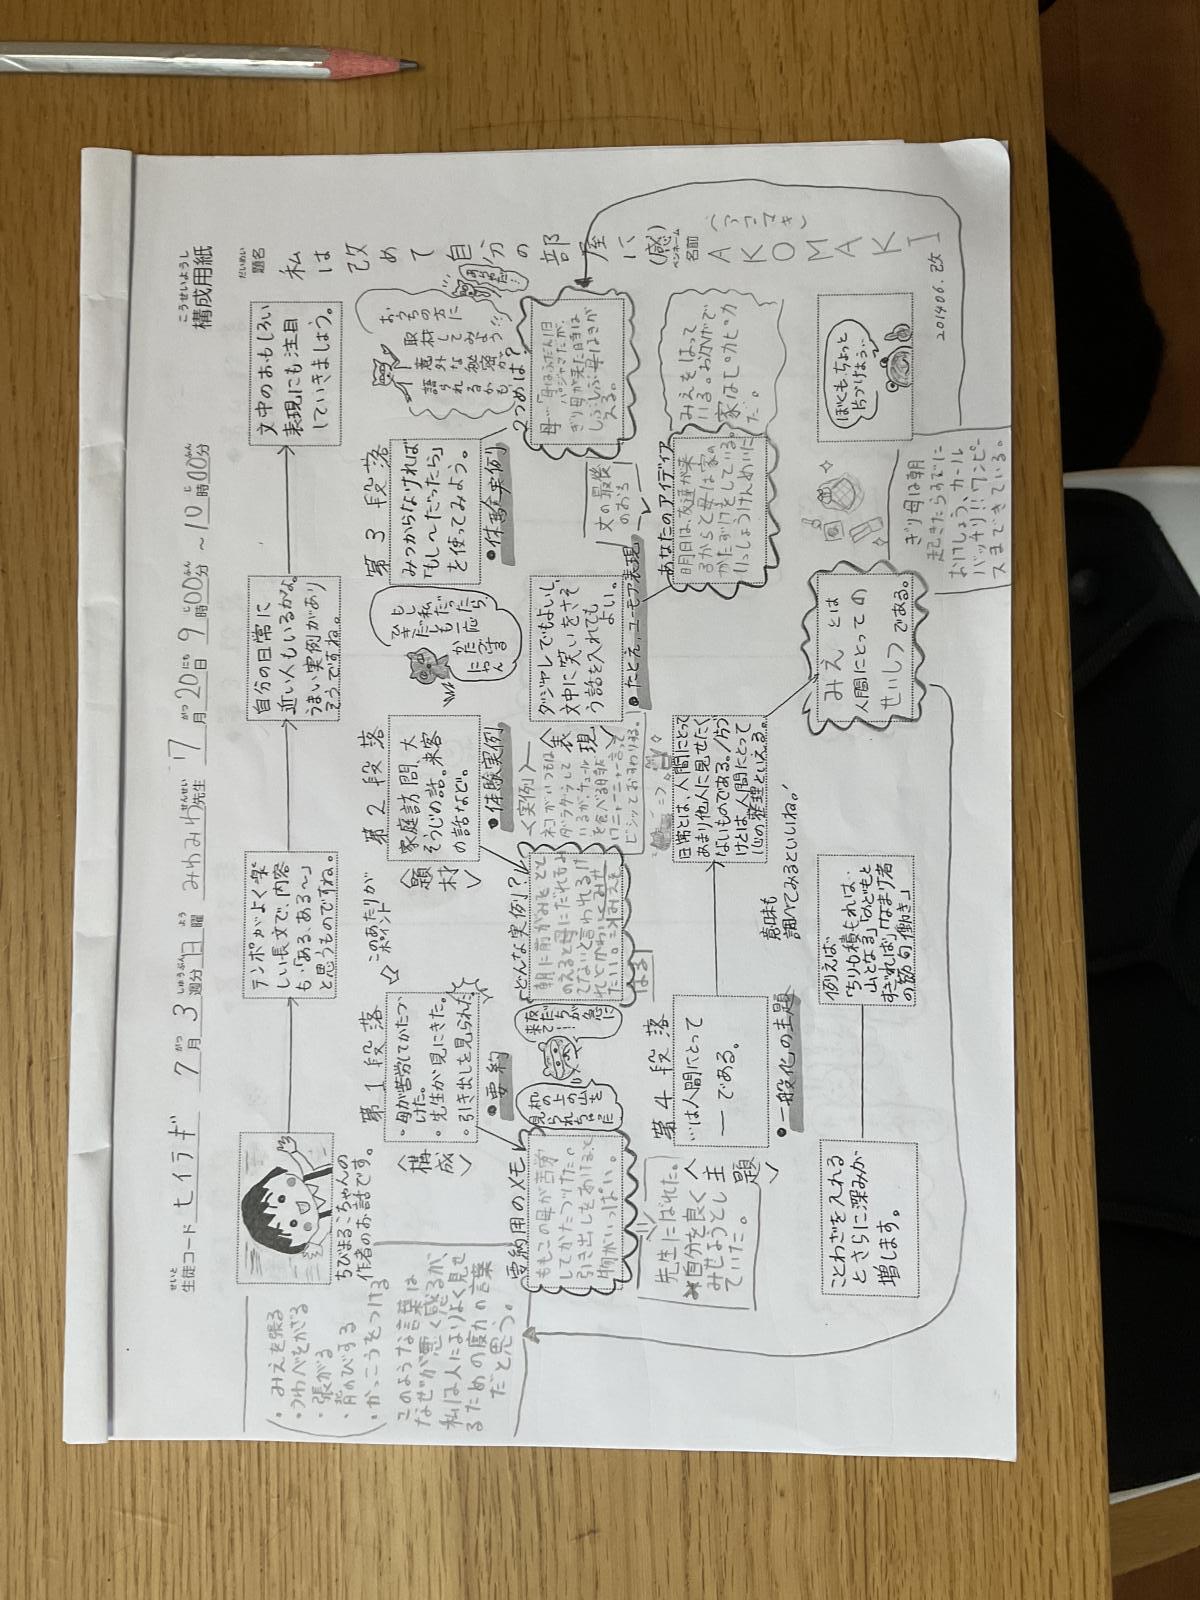 構成用紙
こうせいようし
生徒コード ヒイラギ 7月3週分 日曜 みわみわ先生 7月20日 9時00分～10時00分
題名
だいめい
私は改めて自分の部屋に(感)
ペンネーム
名前
AKOMAKI
201406.改
ちびまるこちゃんの
作者のお話です。
テンポがよく楽
しい長文で、内容
も「ある、ある～」
と思うものですね。
自分の日常に
近い人もいるかな。
うまい実例があり
そうですね。
文中のおもしろい
表現にも注目
していきましょう。
・みえを張る
・うわべをかざる
・張がる
・背のびする
・かっこうをつける
このような言葉は
なぜか悪く感るが、
私は人によりよく見せ
るための度力の言葉
だと思う。
第1段落
・母が苦労してかたづ
けた。
・先生が見にきた。
・引き出しを見られた
〈構成〉
●要約
このあたりが
ポイント
要約用のメモ
ももこの母が苦労
してかたつけた。
引き出しをあけると
物がいっぱい。
先生にばれた。
自分を良く
みせようとし
ていた。
机の上の
第2段落
家庭訪問、大
そうじの話。来客
の話など。
〈題材〉
●体験実例
どんな実例？
朝に前がみをとと
のえると母にだれもみ
てないと言われるけ
れど
〈実例〉
ネコがいつもは
ダラダラして
いるが、チュール
を食べる時は
ニャーニャー言って
ビシッとおすわりする。
もし
私だっ
たら
第3段落
みつからなければ
「もし～だったら」
を使ってみよう。
●体験実例
おうちの方に
取材してみよう！
意外な秘密が
語られるかも
2つめは？
母…「母はふだん1日
パジャマだが、
ぎり母が来た日は
しぶしぶ母はきが
える。
文の最後
のおる
ダジャレでもよいし、
文中に笑いをさそ
う話を入れても
よい。
〈表現〉
●たとえ、ユーモア表現
あなたのアイディア
明日は、友達が来
るからと母は家の
かたずけをしている。
いっしょうけんめいだ
みえをはって
いる。おかげで
家はピカピカ
だ。
第4段落
…は人間にとって
― である。
〈主題〉
●一般化の主題
日常とは、人間にとって
あまり他人に見せたく
ないものである。/片づ
けとは人間にとって
心の整理といえる。
みえ とは
人間にとっての
せいしつ である。
ことわざを入れる
とさらに深みが
増します。
例えば、
「ちりも積もれば、
山となる」「のどもと
すぎれば」「なまけ者
の節句働き」
意味も
調べてみるといいね。
ぼくも、ちょっと
片づけよう…
ぎり母は朝
起きたらすでに
おけしょう、カール
バッチリ!!ワンピー
スまできている。